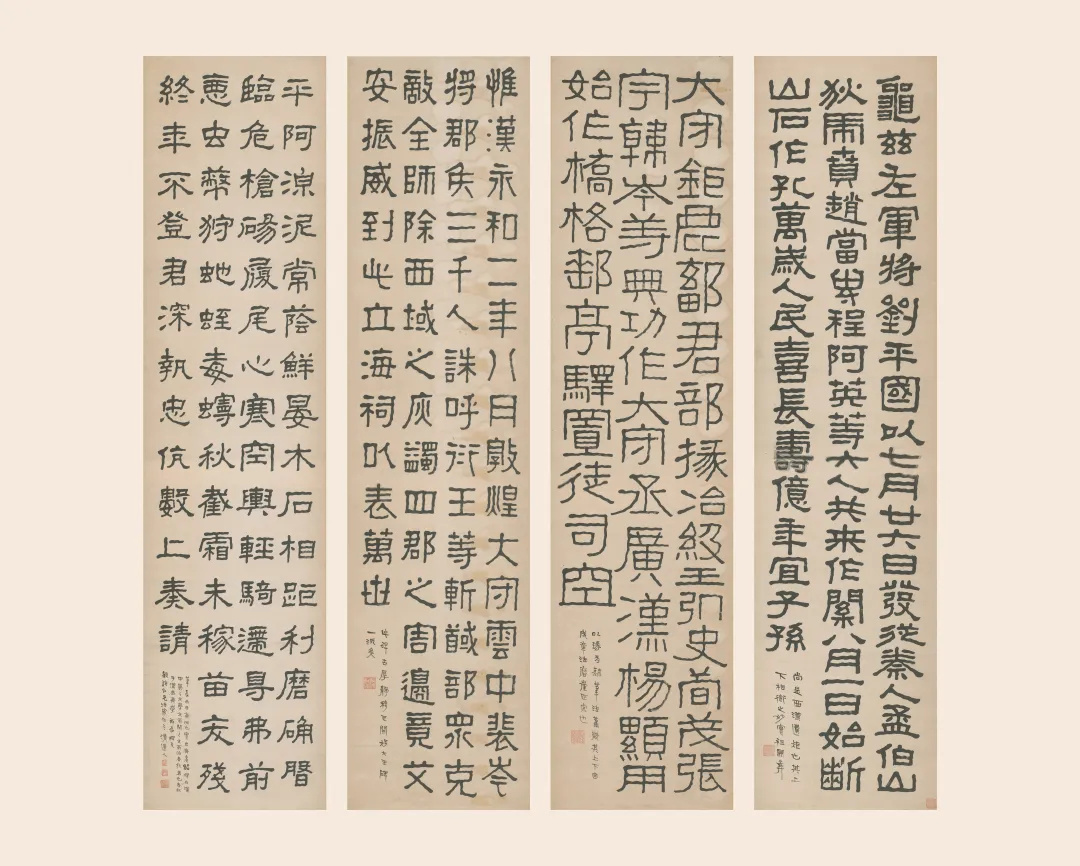 龜茲左軍將劉平國以七月廿六日發從秦人孟伯山
狄虎賁趙當卑程阿英等六人共來作關八月一日始斷
山石作孔萬歲人民喜長壽億年宜子孫
尚是西漢遺矩也其上
大守鉅鹿鄐君部掾冶級王弘史荀茂張
宇韓岑等興功作大守丞廣漢楊顯用
始作橋格郵亭驛置徒司空
惟漢永和二年八月敦煌大守雲中裴岑
將郡兵三千人誅呼衍王等斬馘部眾克
敵全師除西域之灾蠲四郡之害邊竟艾
安振威到此立海祠以表萬世
平阿淖泥常蔭鮮晏木石相距利磨确磐
臨危槍碭履尾心寒空輿輕騎遰导弗前
惡虫弊狩蛇蛭毒蟃秋截霜未稼苗夭殘
終年不登君深執忠伉數上奏請